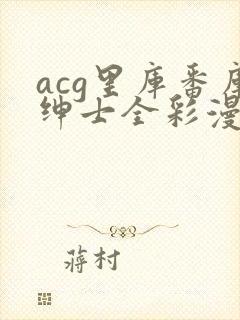 acg里库番库
绅士全彩漫
蒋村